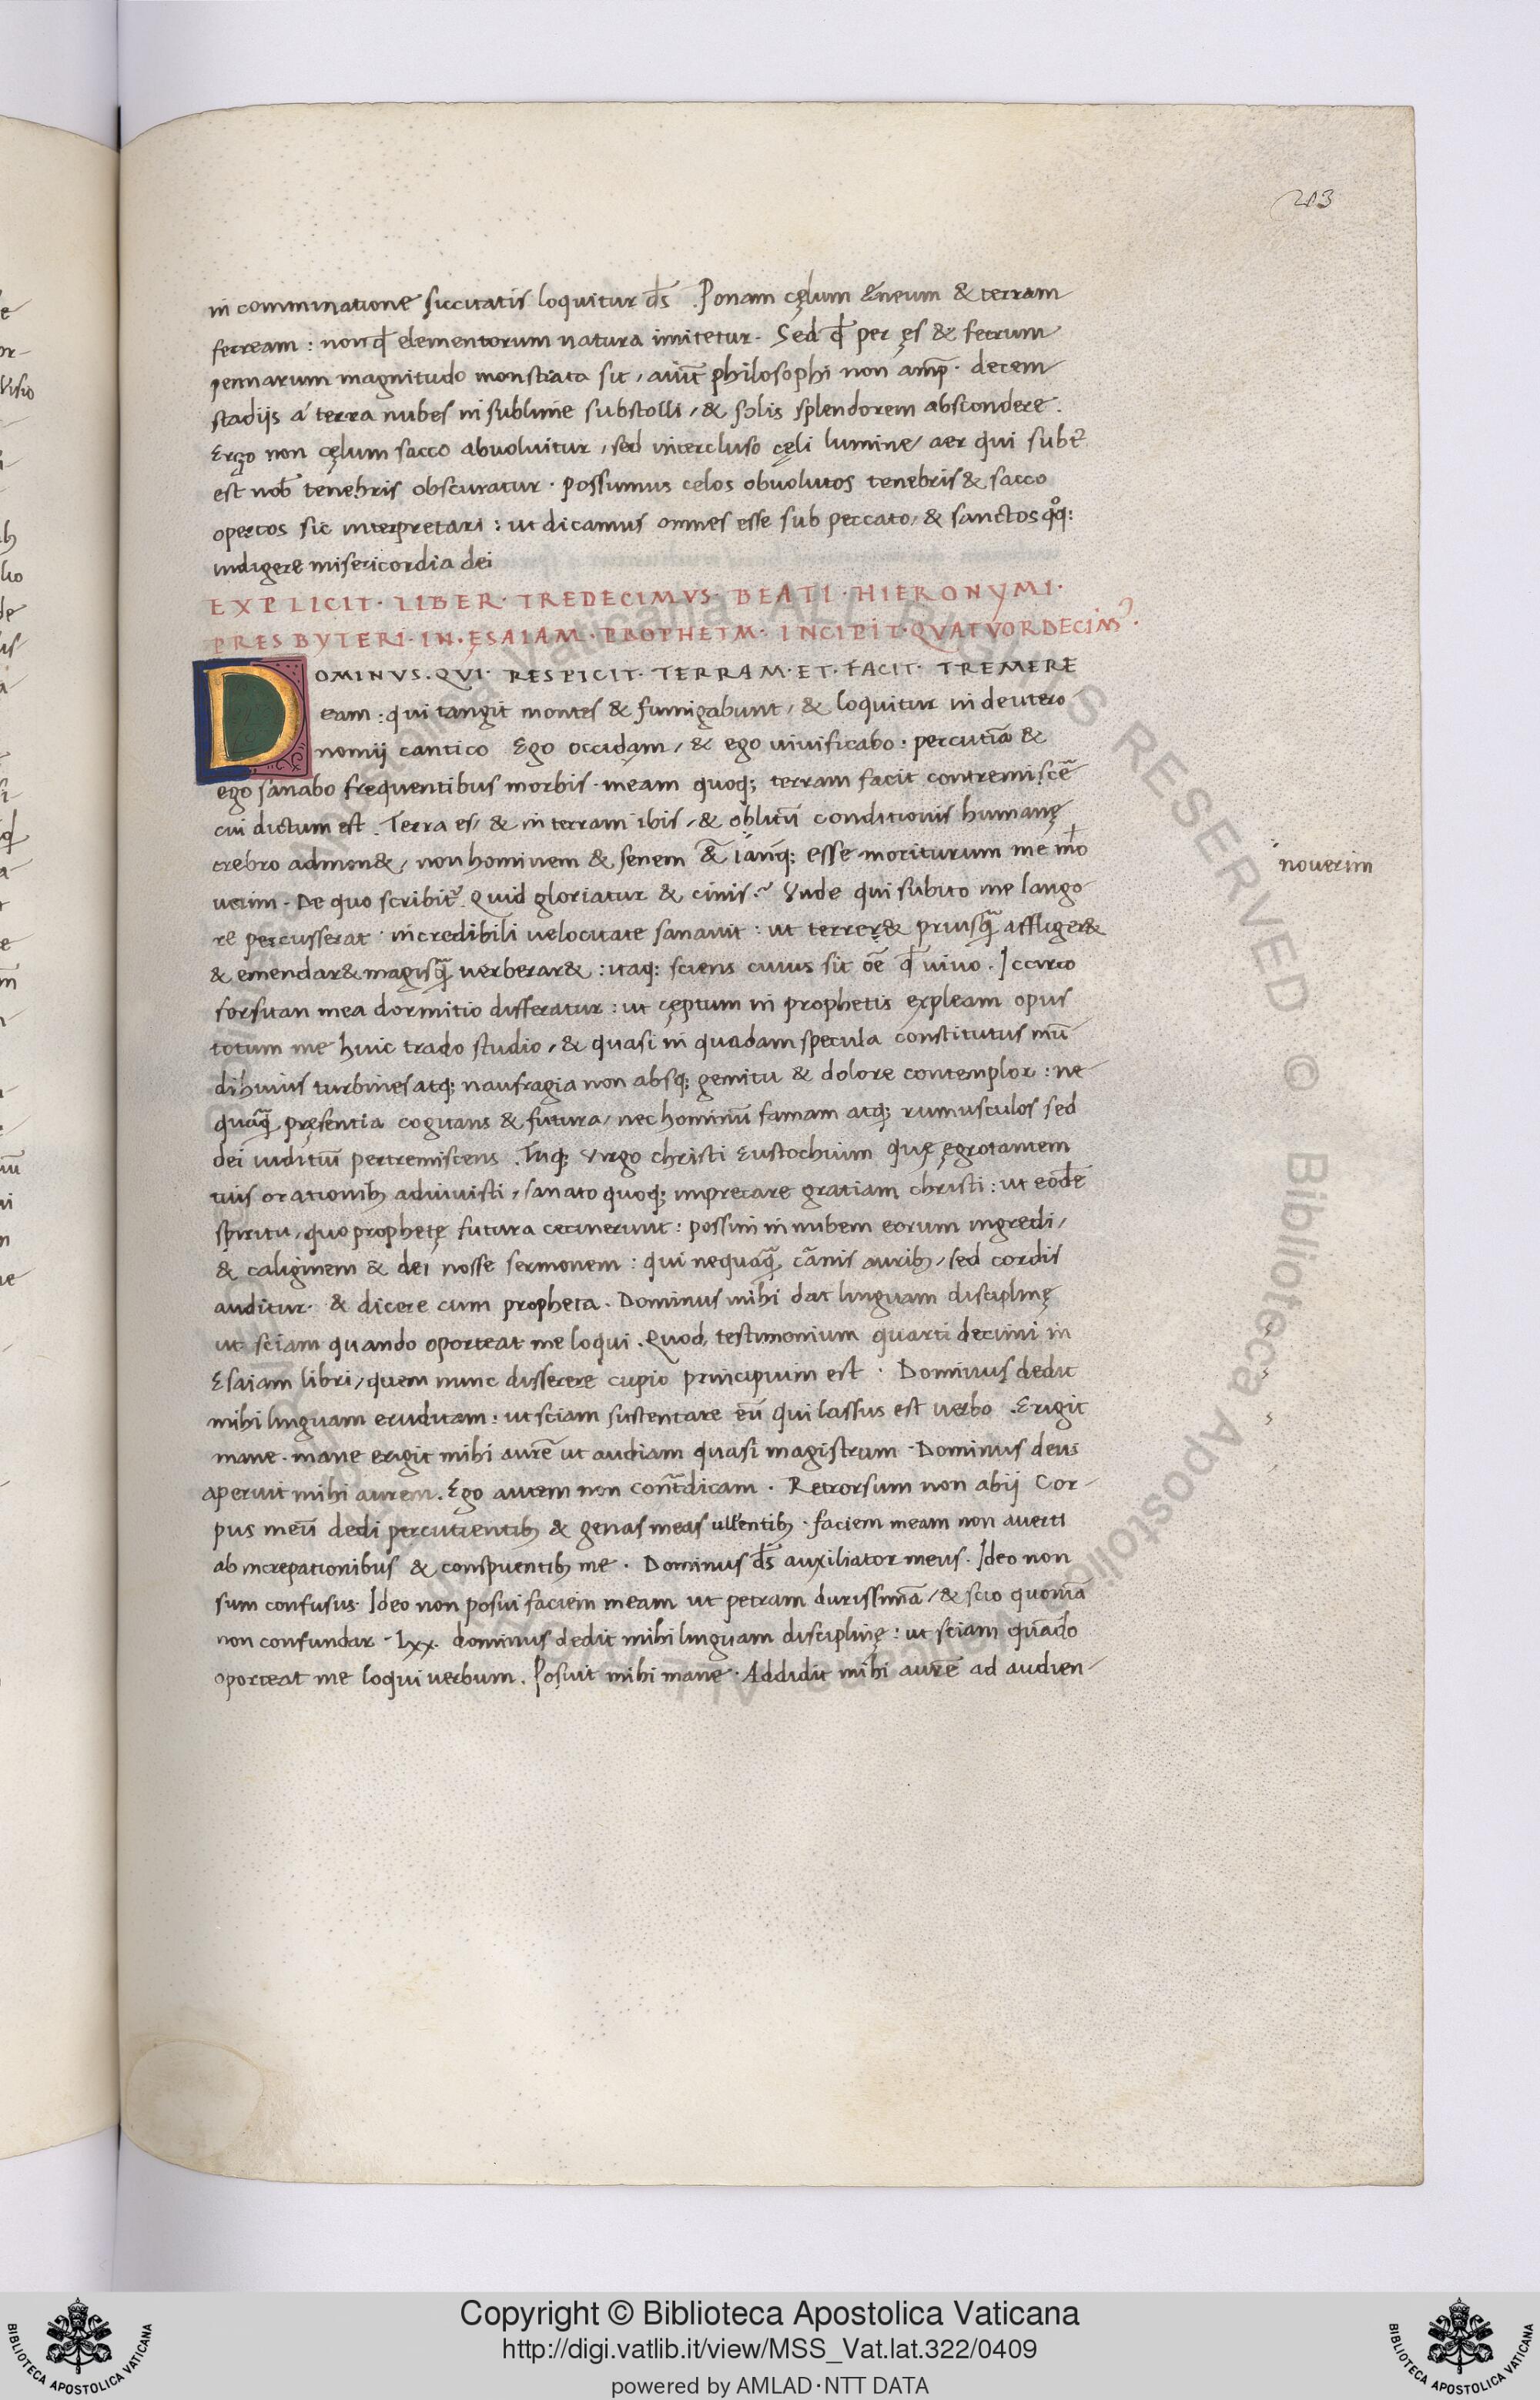 203
in comminatione siccitatis loquitur ds̄ . Ponam cęlum ęneum & terram
ferream : non qđ elementorum natura imitetur . Sed qđ per ęs & ferrum
pennarum magnitudo monstrata sit , aiūt philosophi non amp̄ . decem
stadijs á terra nubes in sublime substolli , & solis splendorem abscondere .
Ergo non cęlum sacco abvoluitur , sed intercluso cęli lumine , aer qui subt̄
est nob̄ tenebris obscuratur . possumus celos obuolutos tenebris & sacco
opertos sic interpretari : ut dicamus omnes esse sub peccato , & sanctos qͦq :
indigere misericordia dei
EXPLICIT · LIBER · TREDECIMVS · BEATI · HIERONYMI ·
PRESBYTERI · IN · ĘSAIAM · PROPHETM · INCIPIT · QVATVORDECIM9 .
DOMINVS . QVI · RESPICIT · TERRAM · ET · FACIT · TREMERE
eam : qui tangit montes & fumigabunt , & loquitur in deutero
nomij cantico Ego occidam , & ego uiuificabo : percutiā &
ego sanabo frequentibus morbis . meam quoq; terram facit contremiscē
cui dictum est . Terra es , & in terram ibis , & oblitū conditionis humanę
crebro admon& , non hominem & senem & iāq; esse moriturum me mo
uerim . De quo scribit᷑ . Quid gloriatur & cinis ? Vnde qui subito me lango
re percusserat incredibili uelocitate sanauit : ut terrer& priusq̄ affliger&
& emendar& magisq̄ uerberar& : itaq; sciens cuius sit oē qđ uiuo . Iccirco
forsitan mea dormitio differatur : ut cęptum in prophetis expleam opus
totum me huic trado studio , & quasi in quadam specula constitutus mū
di huius turbines atq; naufragia non absq; gemitu & dolore contemplor : ne
quaq̄ pręsentia cogitans & futura , nec hominū famam atq; rumusculos sed
dei iuditiū pertremiscens . Tuq; uirgo christi Eustochium quę ęgrotantem
tuis orationib; adiuuisti , sanato quoq; imprecare gratiam christi : ut eodē
spiritu , quo prophetę futura cecinerunt : possim in nubem eorum ingredi ,
& caliginem & dei nosse sermonem : qui nequaq̄ cānis aurib; , sed cordis
auditur . & dicere cum propheta . Dominus mihi dat linguam disciplinę
ut sciam quando oporteat me loqui . Quod testimonium quarti decimi in
Esaiam libri , quem nunc disserere cupio principium est . Dominus dedit
mihi linguam eruditam : ut sciam sustentare eū qui lassus est uerbo . Erigit
mane . mane erigit mihi aurē ut audiam quasi magistrum . Dominus deus
aperuit mihi aurem . Ego autem non cont̄dicam . Retrorsum non abij Cor-
pus meū dedi percutientib; & genas meas uellentib; . faciem meam non auerti
ab increpationibus & conspuentib; me . Dominus ds̄ auxiliator meus . Ideo non
sum confusus . Ideo non posui faciem meam ut petram durissimā , & scio quoniā
non confundar . Lxx . dominus dedit mihi linguam disciplinę : ut sciam quādo
oporteat me loqui uerbum . Posuit mihi mane . Addidit mihi aurē ad audien-
nouerim
Copyright © Biblioteca Apostolica Vaticana
http://digi.vatlib.it/view/MSS_Vat.lat.322/0409
powered by AMLAD·NTT DATA
BIBLIOTECA APOSTOLICA VATICANA
BIBLIOTECA APOSTOLICA VATICANA